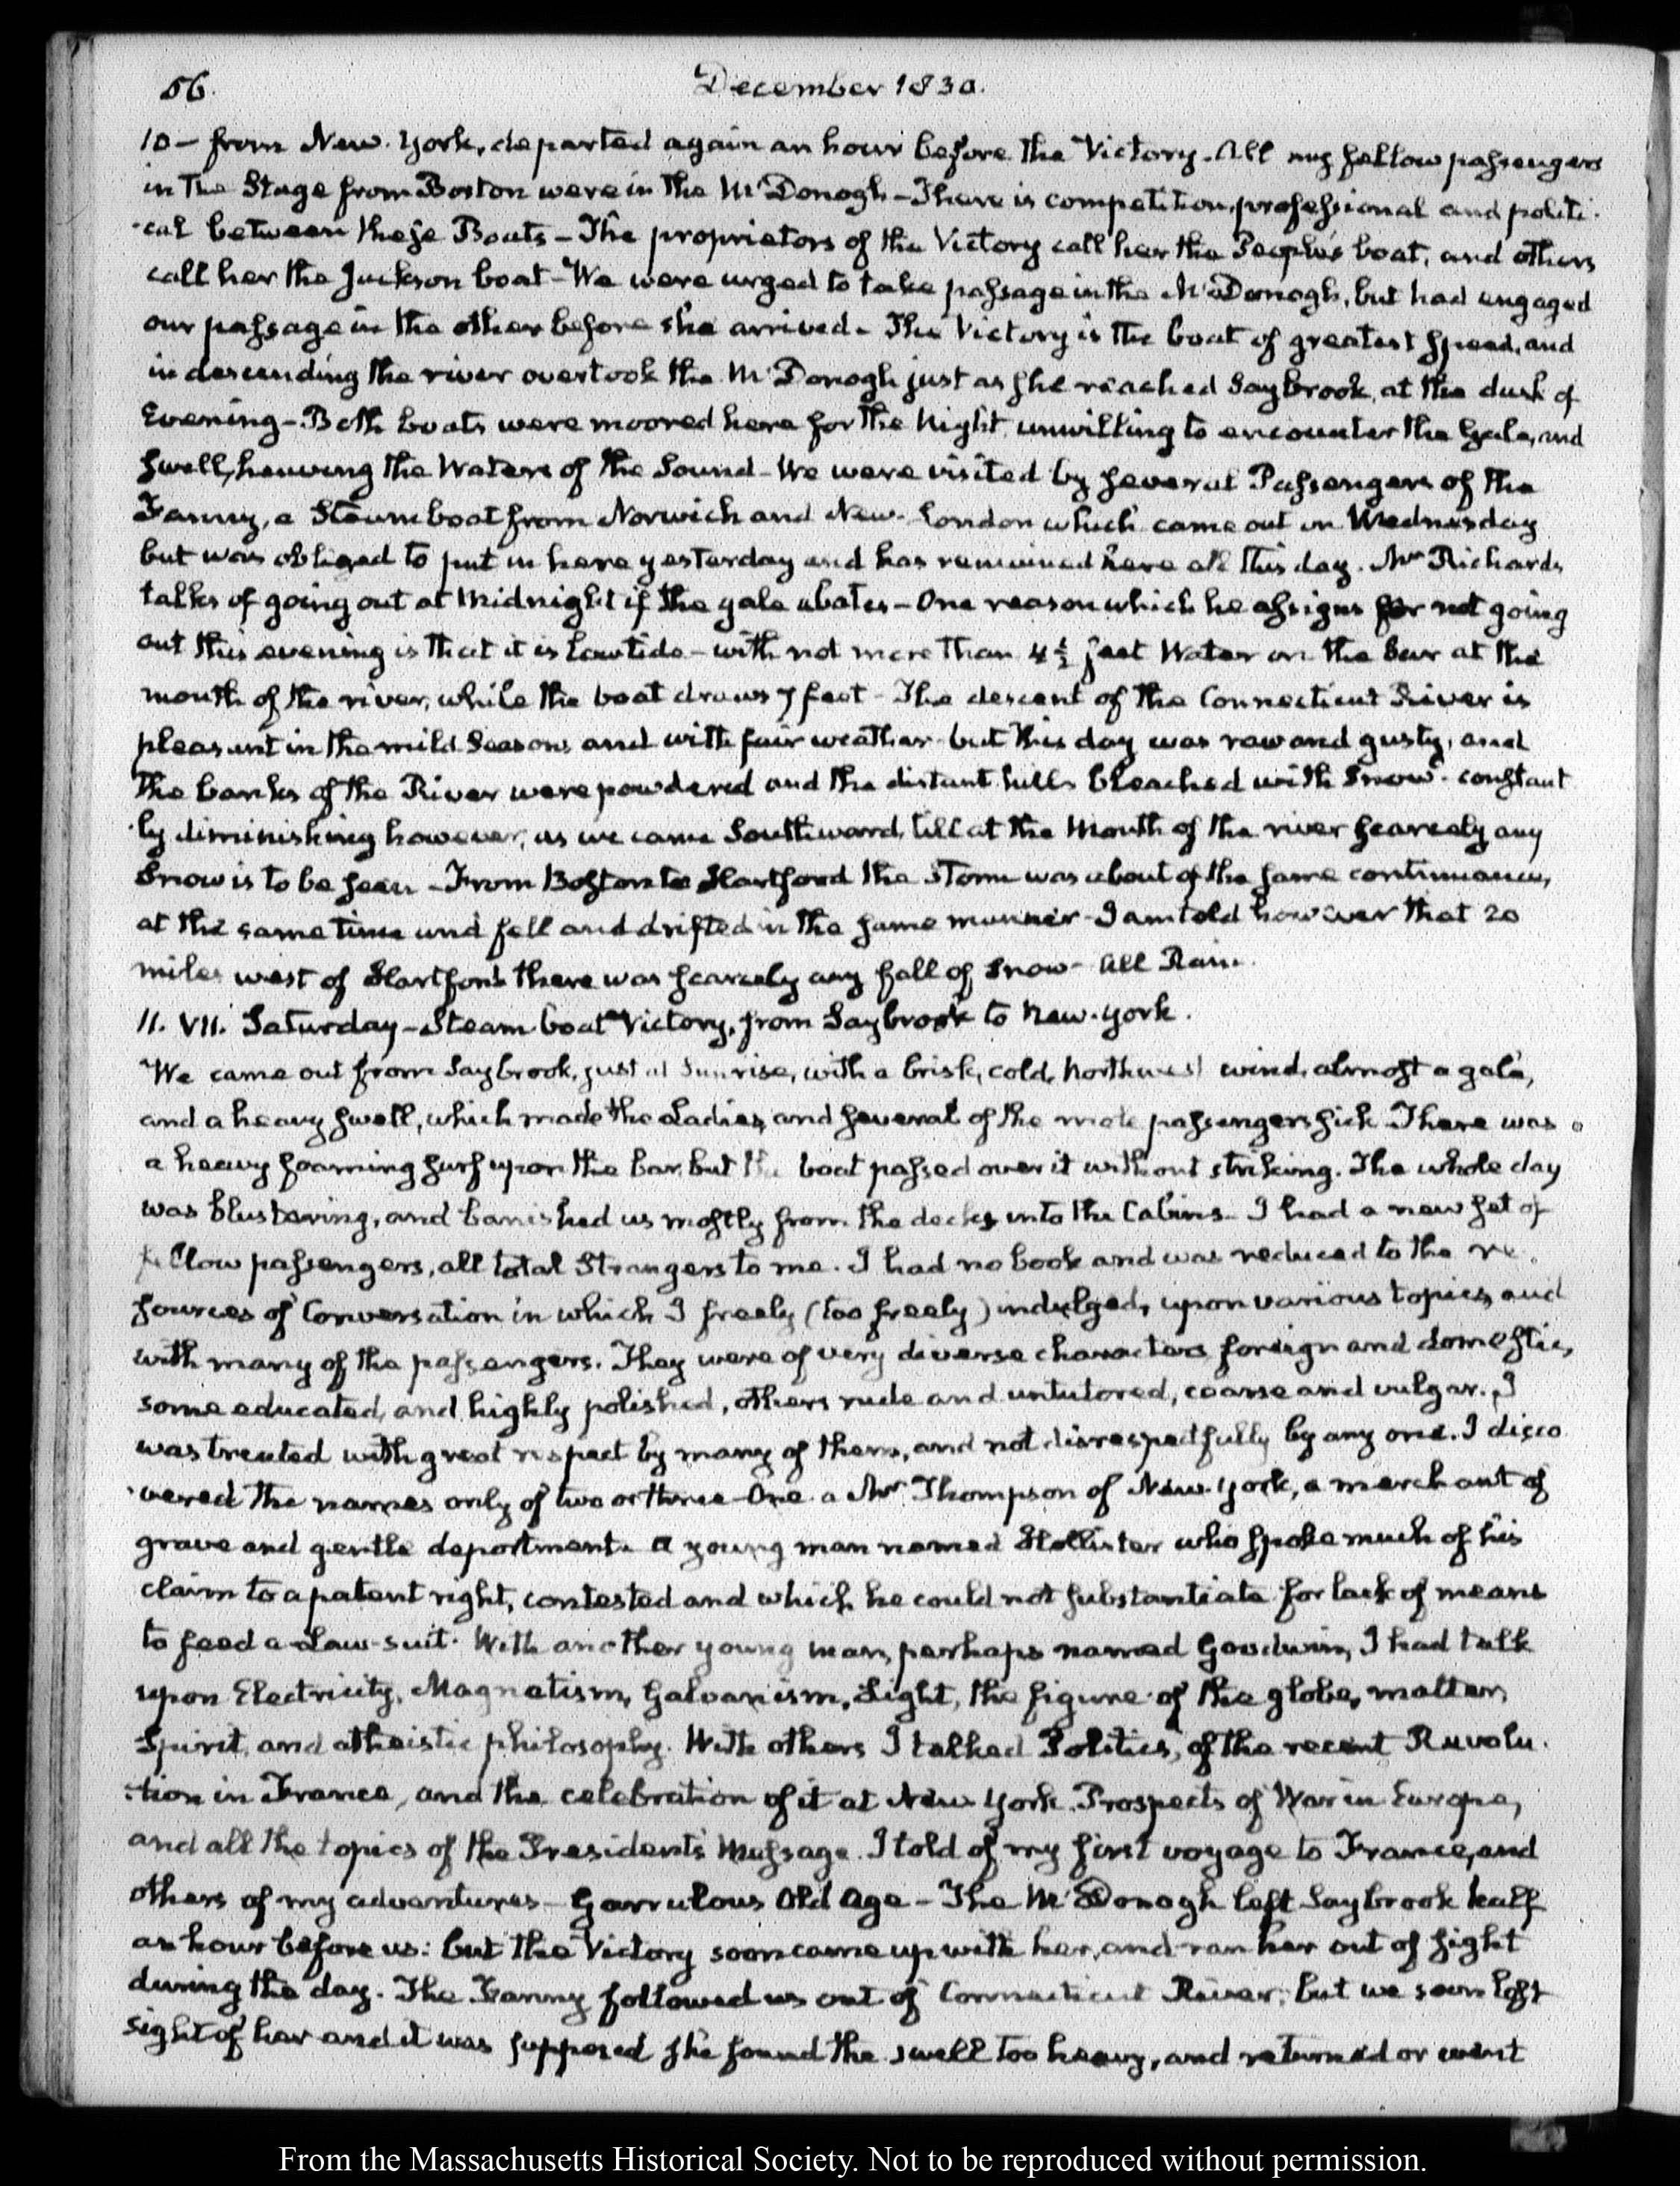 56.
December 1830.
10 — from New-York, departed again an hour before the Victory. All my fellow passengers
in the Stage from Boston were in the McDonogh — There is competition, professional and politi-
-cal between these Boats — The proprietors of the Victory call her the People's boat, and others
call her the Jackson boat — We were urged to take passage in the McDonogh, but had engaged
our passage in the other before she arrived — The Victory is the boat of greatest speed, and
in descending the river overtook the McDonogh just as she reached Saybrook, at the dusk of
Evening — Both boats were moored here for the Night, unwilling to encounter the Gale, and
swell, heaving the Waters of the Sound — We were visited by several Passengers of the
Fanny, a Steam boat from Norwich and New-London which came out on Wednesday
but was obliged to put in here yesterday and has remained here all this day. Mr Richards
talks of going out at Midnight if the gale abates — One reason which he assigns for not going
out this evening is that it is low tide — with not more than 4½ feet Water on the bar at the
mouth of the river, while the boat draws 7 feet — The descent of the Connecticut River is
pleasant in the mild Seasons and with fair weather but this day was raw and gusty, and
the banks of the River were powdered and the distant hills bleached with Snow - constant
-ly diminishing however, as we came Southward, till at the Mouth of the river scarcely any
Snow is to be seen — From Boston to Hartford the Storm was about of the same continuance,
at the same time and fell and drifted in the same manner — I am told however that 20
miles west of Hartford there was scarcely any fall of Snow — All Rain.
11. VII. Saturday — Steam boat Victory, from Saybrook to New-York.
We came out from Saybrook, just at Sunrise, with a brisk, cold, Northwest wind, almost a gale,
and a heavy swell, which made the Ladies, and several of the male passengers sick. There was a
a heavy foaming surf upon the bar, but the boat passed over it without striking. The whole day
was blustering, and banished us mostly from the decks into the Cabins. I had a new set of
fellow passengers, all total Strangers to me. I had no book and was reduced to the re-
sources of Conversation in which I freely (too freely) indulged, upon various topics, and
with many of the passengers. They were of very diverse characters foreign and domestic,
some educated, and highly polished, others rude and untutored, coarse and vulgar. I
was treated with great respect by many of them, and not disrespectfully by any one. I disco
-vered the names only of two or three — One a Mr Thompson of New-York, a merchant of
grave and gentle deportment. A young man named Hollister who spoke much of his
claim to a patent right, contested and which he could not substantiate for lack of means
to feed a Law-suit. With another young man, perhaps named Goodwin, I had talk
upon Electricity, Magnetism, Galvanism, Light, the figure of the globe, matter,
Spirit, and atheistic philosophy. With others I talked Politics, of the recent Revolu-
-tion in France, and the celebration of it at New York. Prospects of War in Europe,
and all the topics of the President's Message. I told of my first voyage to France, and
others of my adventures — Garrulous Old Age — The McDonogh left Saybrook half
an hour before us: but the Victory soon came up with her, and ran her out of sight
during the day. The Fanny followed us out of Connecticut River; but we soon lost
sight of her and it was supposed she found the swell too heavy, and returned or went
From the Massachusetts Historical Society. Not to be reproduced without permission.